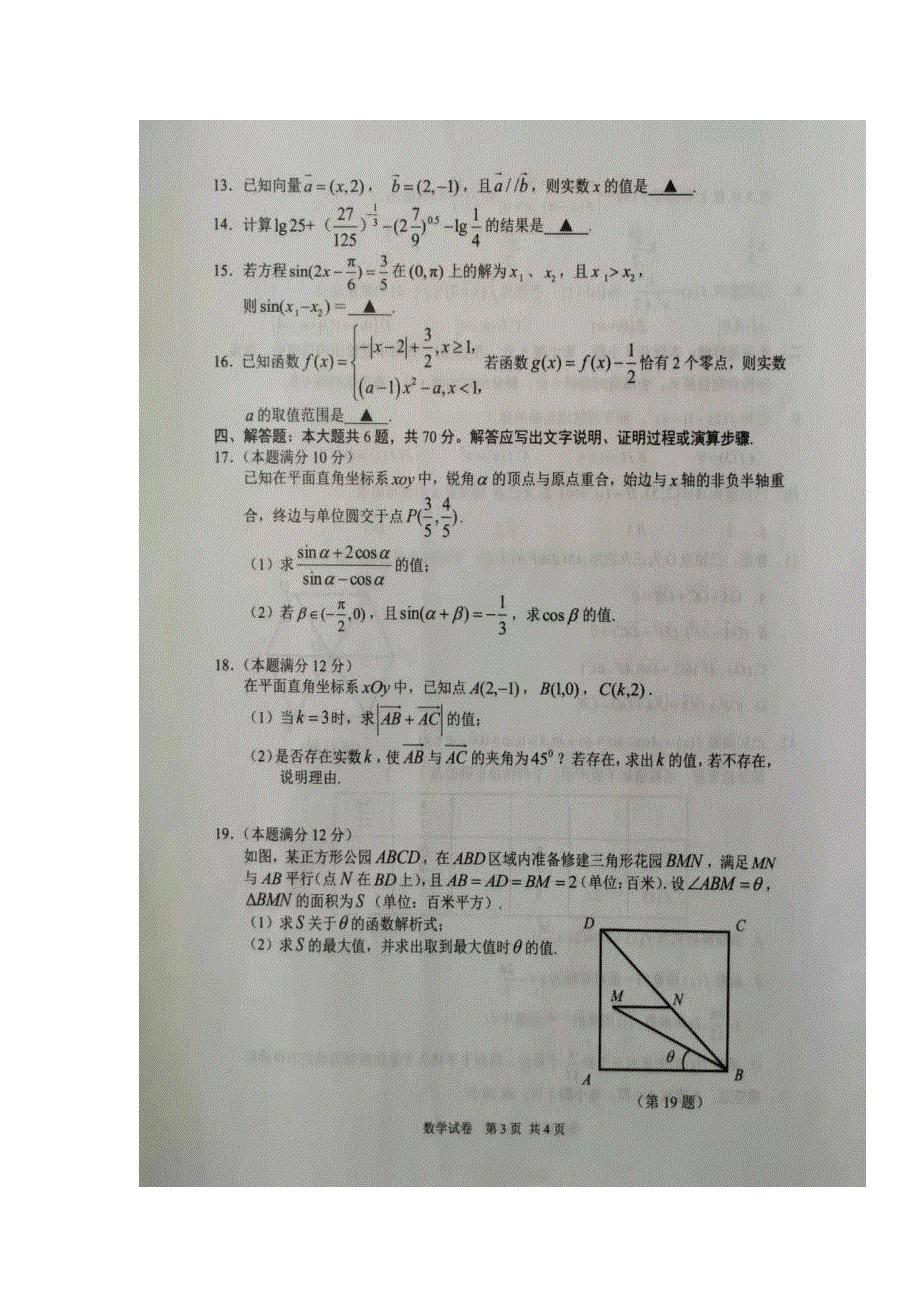 13. 已知向量 a⃗ = (x,2)， b⃗ = (2,−1)，且 a⃗ // b⃗，则实数 x 的值是 ▲ .
14. 计算 lg 25+（27/125）^(−1/3) −(2 7/9)^0.5 −lg 1/4 的结果是 ▲ .
15. 若方程 sin(2x − π/6) = 3/5 在 (0, π) 上的解为 x₁、x₂，且 x₁> x₂，
则 sin(x₁−x₂) = ▲ .
16. 已知函数 f(x) = { −|x−2|+ 3/2, x≥1， (a−1)x² −a, x<1， 若函数 g(x) = f(x) − 1/2 恰有 2 个零点，则实数
a 的取值范围是 ▲ .
四、解答题：本大题共 6 题，共 70 分。解答应写出文字说明、证明过程或演算步骤.
17.（本题满分 10 分）
已知在平面直角坐标系 xoy 中，锐角 α 的顶点与原点重合，始边与 x 轴的非负半轴重
合，终边与单位圆交于点 P(3/5, 4/5).
（1）求 (sin α + 2cos α)/(sin α − cos α) 的值；
（2）若 β∈(− π/2 ,0)，且 sin(α + β) = − 1/3，求 cos β 的值.
18.（本题满分 12 分）
在平面直角坐标系 xOy 中，已知点 A(2,−1)，B(1,0)，C(k,2).
（1）当 k = 3 时，求 |AB⃗ + AC⃗| 的值；
（2）是否存在实数 k，使 AB⃗ 与 AC⃗ 的夹角为 45⁰？若存在，求出 k 的值，若不存在，
说明理由.
19.（本题满分 12 分）
如图，某正方形公园 ABCD，在 ABD 区域内准备修建三角形花园 BMN，满足 MN
与 AB 平行（点 N 在 BD 上），且 AB = AD = BM = 2（单位：百米）. 设 ∠ABM = θ，
ΔBMN 的面积为 S（单位：百米平方）.
（1）求 S 关于 θ 的函数解析式；
（2）求 S 的最大值，并求出取到最大值时 θ 的值.
D
C
M
N
θ
A
B
（第 19 题）
数学试卷 第 3 页 共 4 页